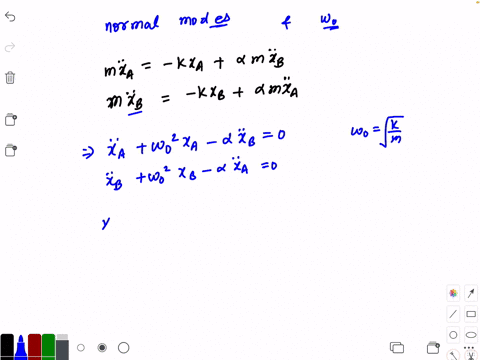 normal modes & ω₀
mẍ_A = -kx_A + αmẍ_B
mẍ_B = -kx_B + αmẍ_A
⇒ ẍ_A + ω₀² x_A - αẍ_B = 0
ω₀ = √(k/m)
ẍ_B + ω₀² x_B - αẍ_A = 0
x